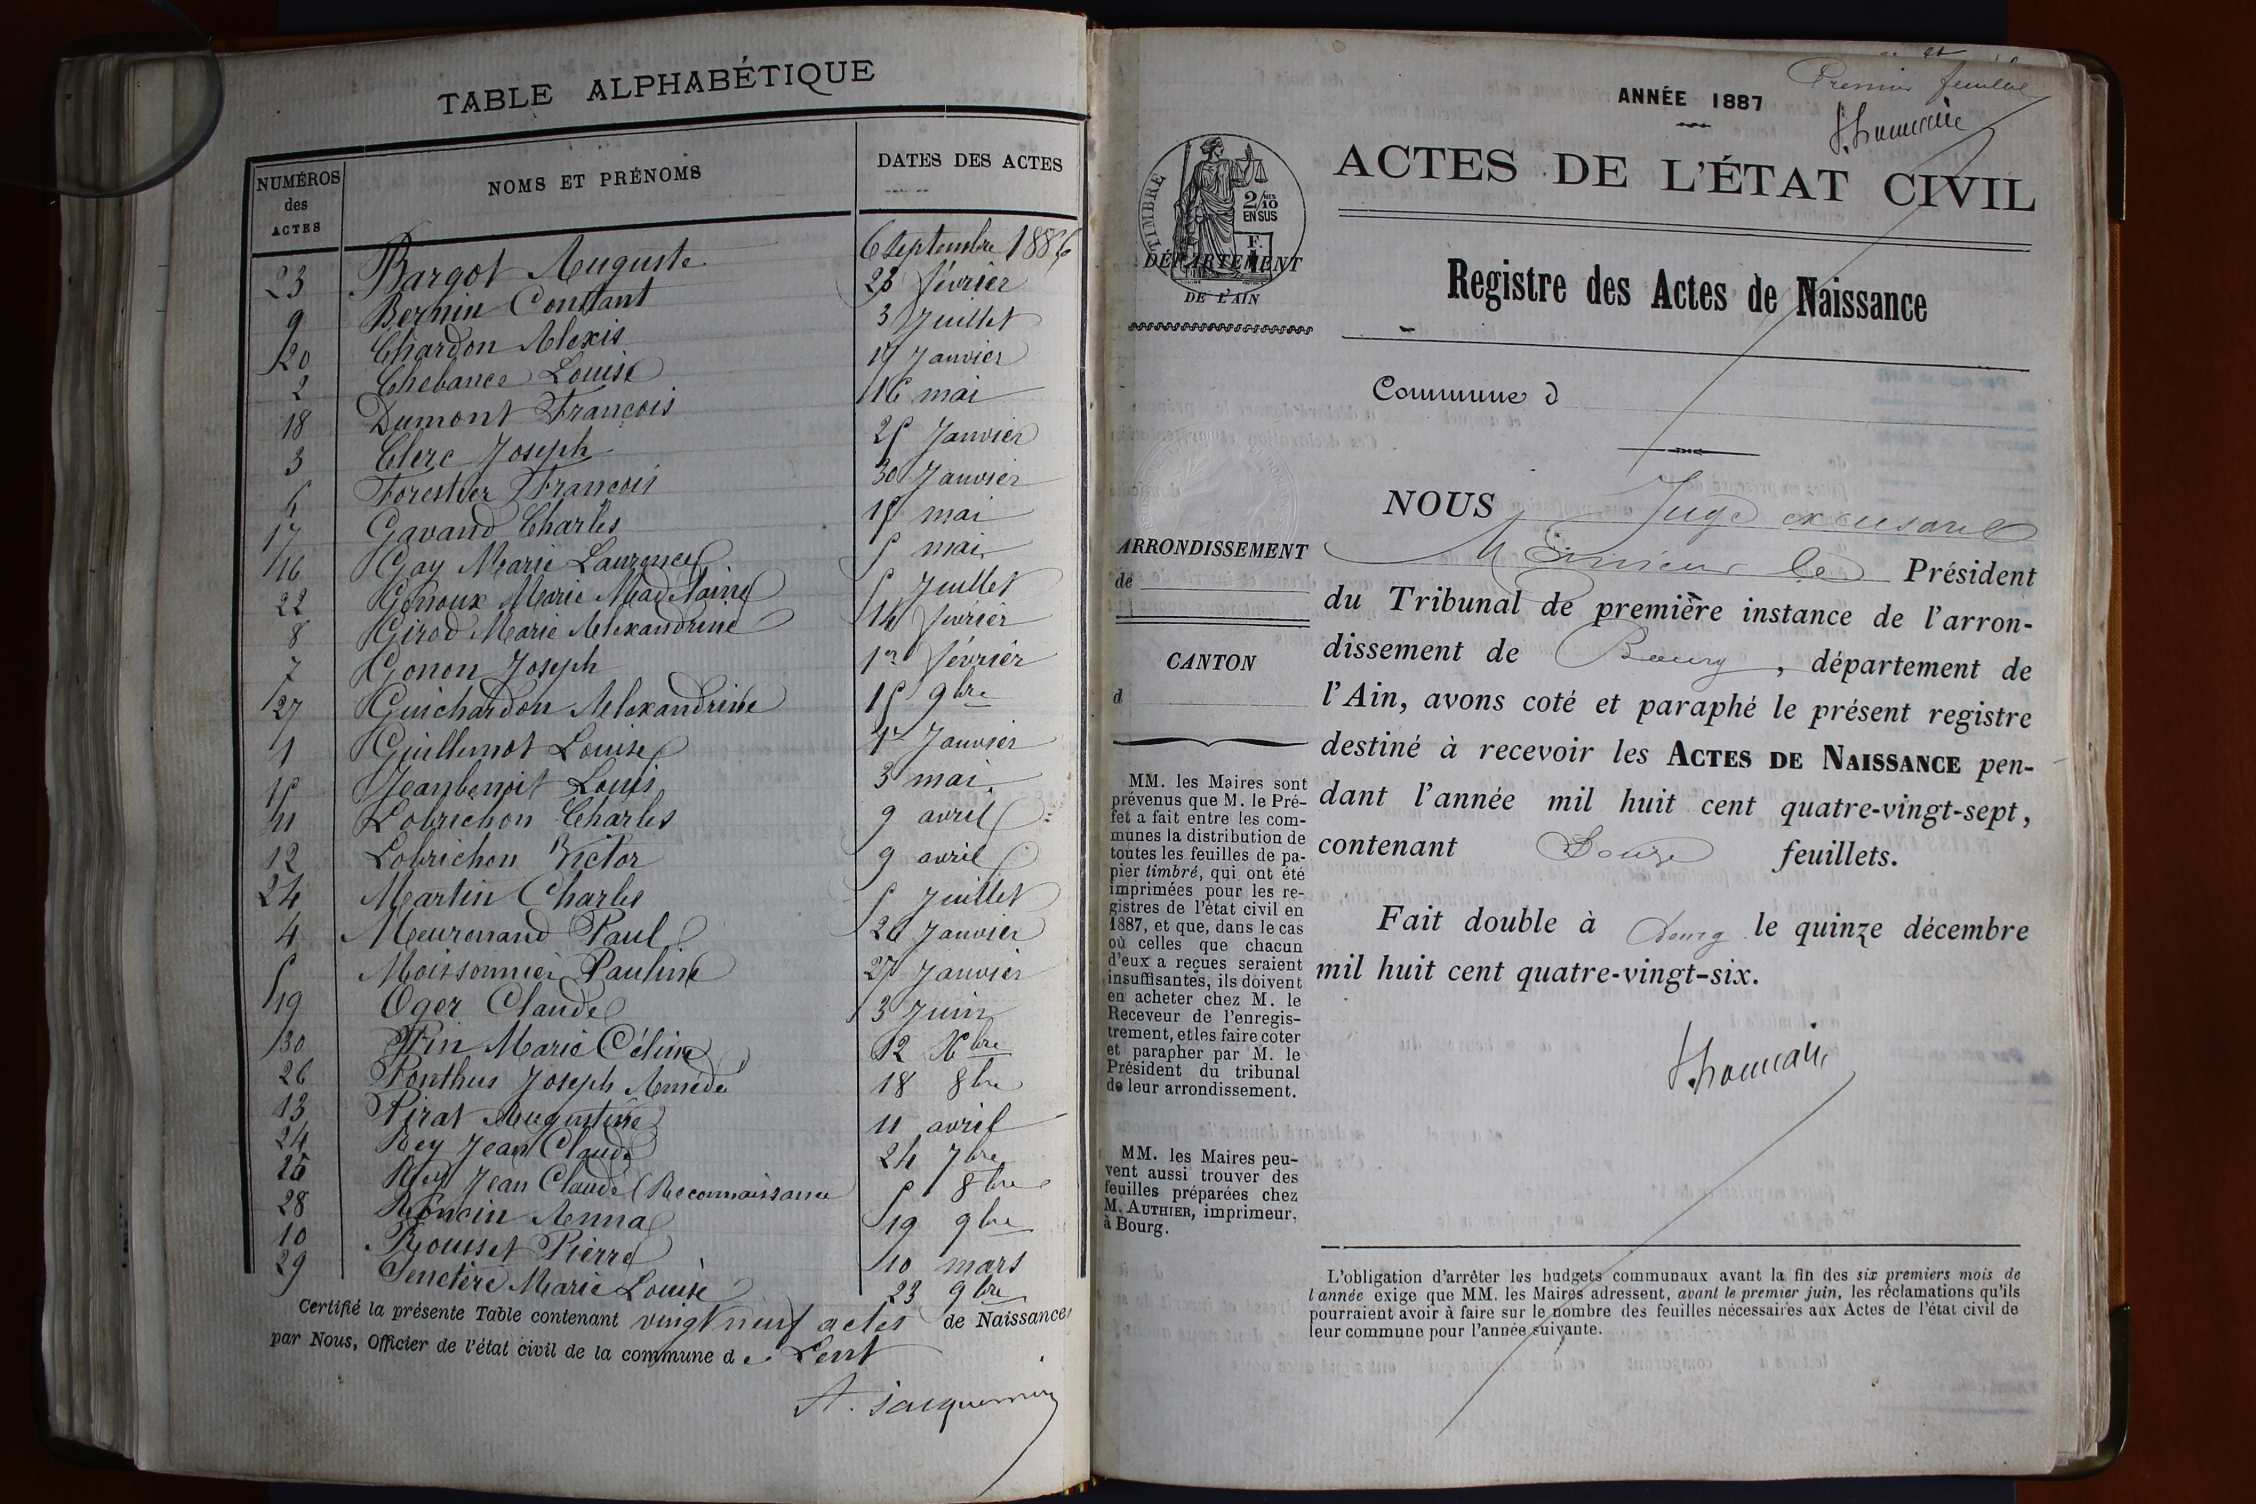 TABLE ALPHABÉTIQUE
NUMÉROS des ACTES
NOMS ET PRÉNOMS
DATES DES ACTES
23 Bargot Auguste 6 septembre 1886
9 Bernin Constant 23 février
20 Chardon Alexis 3 Juillet
2 Chebance Louise 19 Janvier
18 Dumont François 16 mai
3 Clerc Joseph 25 Janvier
6 Forestier François 30 Janvier
17 Gavand Charles 15 mai
16 Gay Marie Laurence 5 mai
22 Marie Madelaine 5 Juillet
8 Girod Marie Alexandrine 14 février
7 Gonon Joseph 1er février
27 Guichardon Alexandrine 15 9bre
1 Guillemot Louise Janvier
15 Jeanbenoit Louis 3 mai
11 Lobrichon Charles 9 avril
12 Lobrichon Victor 9 avril
24 Martin Charles 5 Juillet
4 Meurenand Paul 26 Janvier
5 Moissonnier Pauline 27 Janvier
19 Oger Claude 3 Juin
30 Pin Marie Céline 12 Xbre
26 Ponthus Joseph Amédé 18 8bre
13 Pirat Augustine 11 avril
24 Rey Jean Claude 24 7bre
25 Rey Jean Claude (Reconnaissance 5 8bre
28 Anna 19 9bre
10 Rousset Pierre 10 mars
29 Marie Louise 23 9bre
Certifié la présente Table contenant vingt neuf actes de Naissances
par Nous, Officier de l'état civil de la commune de Lent
A. Jacquemin
Premier feuillet
ANNÉE 1887
ACTES DE L'ÉTAT CIVIL
TIMBRE
2/10
EN SUS
F.
DÉPARTEMENT
DE L'AIN
Registre des Actes de Naissance
Commune d
NOUS Juge
Monsieur le Président
du Tribunal de première instance de l'arron-
dissement de Bourg, département de
l'Ain, avons coté et paraphé le présent registre
destiné à recevoir les ACTES DE NAISSANCE pen-
dant l'année mil huit cent quatre-vingt-sept,
contenant Douze feuillets.
Fait double à Bourg le quinze décembre
mil huit cent quatre-vingt-six.
ARRONDISSEMENT
de
CANTON
d
MM. les Maires sont
prévenus que M. le Pré-
fet a fait entre les com-
munes la distribution de
toutes les feuilles de pa-
pier timbré, qui ont été
imprimées pour les re-
gistres de l'état civil en
1887, et que, dans le cas
où celles que chacun
d'eux a reçues seraient
insuffisantes, ils doivent
en acheter chez M. le
Receveur de l'enregis-
trement, et les faire coter
et parapher par M. le
Président du tribunal
de leur arrondissement.
MM. les Maires peu-
vent aussi trouver des
feuilles préparées chez
M. AUTHIER, imprimeur,
à Bourg.
L'obligation d'arrêter les budgets communaux avant la fin des six premiers mois de
l'année exige que MM. les Maires adressent, avant le premier juin, les réclamations qu'ils
pourraient avoir à faire sur le nombre des feuilles nécessaires aux Actes de l'état civil de
leur commune pour l'année suivante.